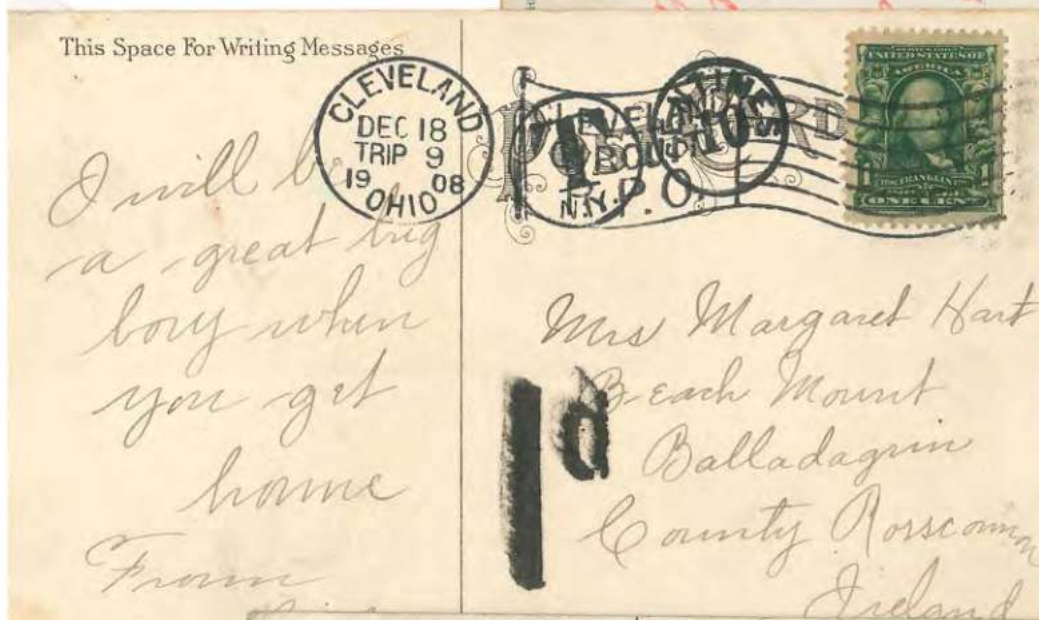 This Space For Writing Messages
CLEVELAND
DEC 18
TRIP 9
1908
OHIO
CLEVELAND
CIRCUIT
R.P.O.
N.Y.P.O.
T
CENTIMES
10
SERIES 1902
UNITED STATES OF
AMERICA
1
FRANKLIN
1
ONE CENT
I will be
a great big
boy when
you get
home
From
Mrs Margaret Hart
Beach Mount
Balladagrin
County Rosscommon
Ireland
1d